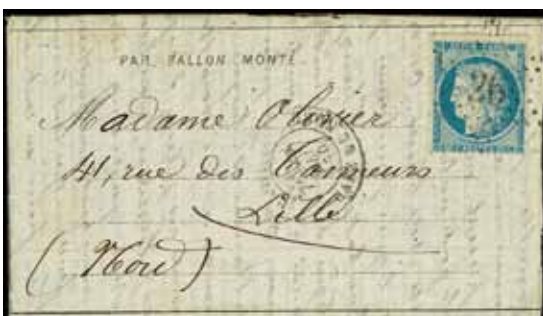 PAR BALLON MONTÉ.
26
Madame Olivier
41, rue des Tanneurs
Lille
(Nord)